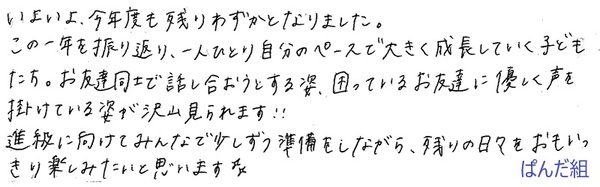 いよいよ、今年度も残りわずかとなりました。
この一年を振り返り、一人ひとり自分のペースで大きく成長していく子ども
たち。お友達同士で話し合おうとする姿、困っているお友達に優しく声を
掛けている姿が沢山見られます!!
進級に向けてみんなで少しずつ準備をしながら、残りの日々をおもいっ
きり楽しみたいと思います☆
ぱんだ組